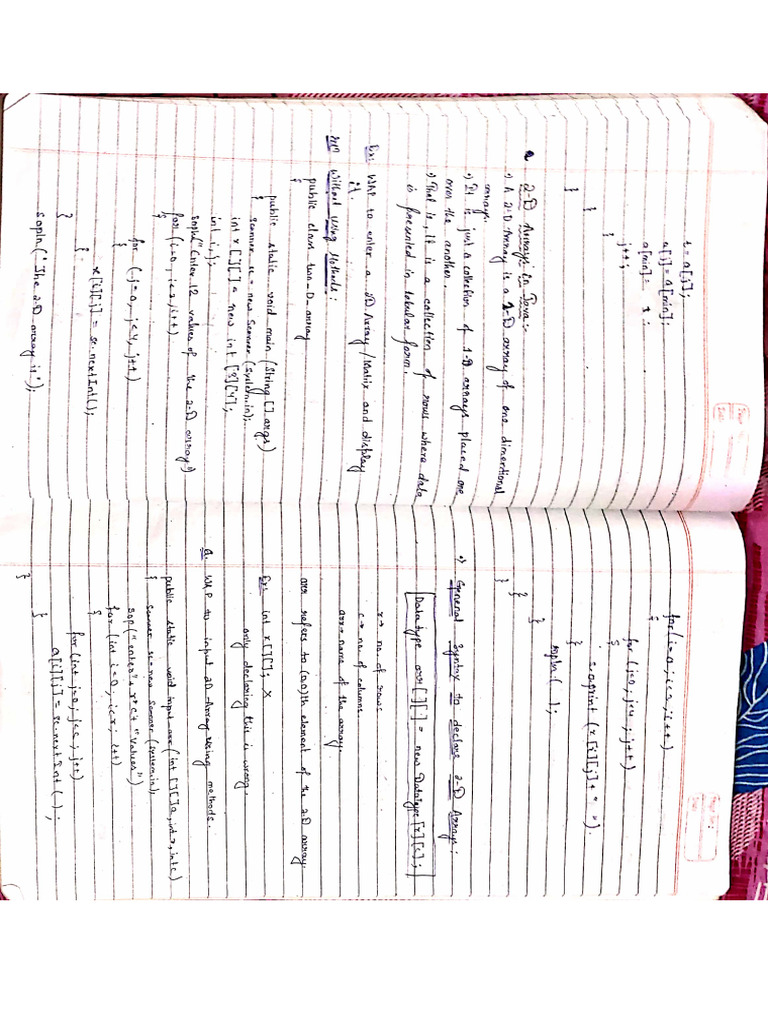 t = a[j];
a[j] = a[min];
a[min] = t;
j++;
}
}
}
2-D Arrays in Java:-
A 2-D Array is a 1-D array of one dimentional
arrays.
It is just a collection of 1-D arrays placed one
over the another.
That is, it is a collection of rows where data
is presented in tabular form.
Ex: WAP to enter a 2D Array/Matrix and display
it.
Without Using Methods:
public class two-D-array
{
public static void main (String [] args)
{ Scanner sc = new Scanner (System.in);
int x[][] = new int [3][4];
int i, j;
sopln("Enter 12 values of the 2-D array")
for (i=0, i<3, i++)
{
for (j=0, j<4, j++)
{
x[i][j] = sc.nextInt();
}
}
sopln("The 2-D array is");
for (i=0, i<3, i++)
{
for (j=0; j<4; j++)
{
s.o.print (x[i][j] + " ").
}
sopln ( );
}
}
}
General Syntax to declare 2-D Arrays:
Datatype arr[][] = new Datatype[r][c];
r → no. of rows
c → no. of columns
arr → name of the array.
arr refers to (0,0)th element of the 2-D array.
Ex: int x[][]; X
only declaring this is wrong.
Q. WAP to input 2D-Array using methods.
public static void input_arr (int [][]a, int r, int c)
{ Scanner sc = new Scanner (System.in);
sop("enter" + r*c + "values")
for (int i=0, i<r, i++)
{
for (int j=0, j<c, j++)
{
a[i][j] = sc.nextInt ();
}
}